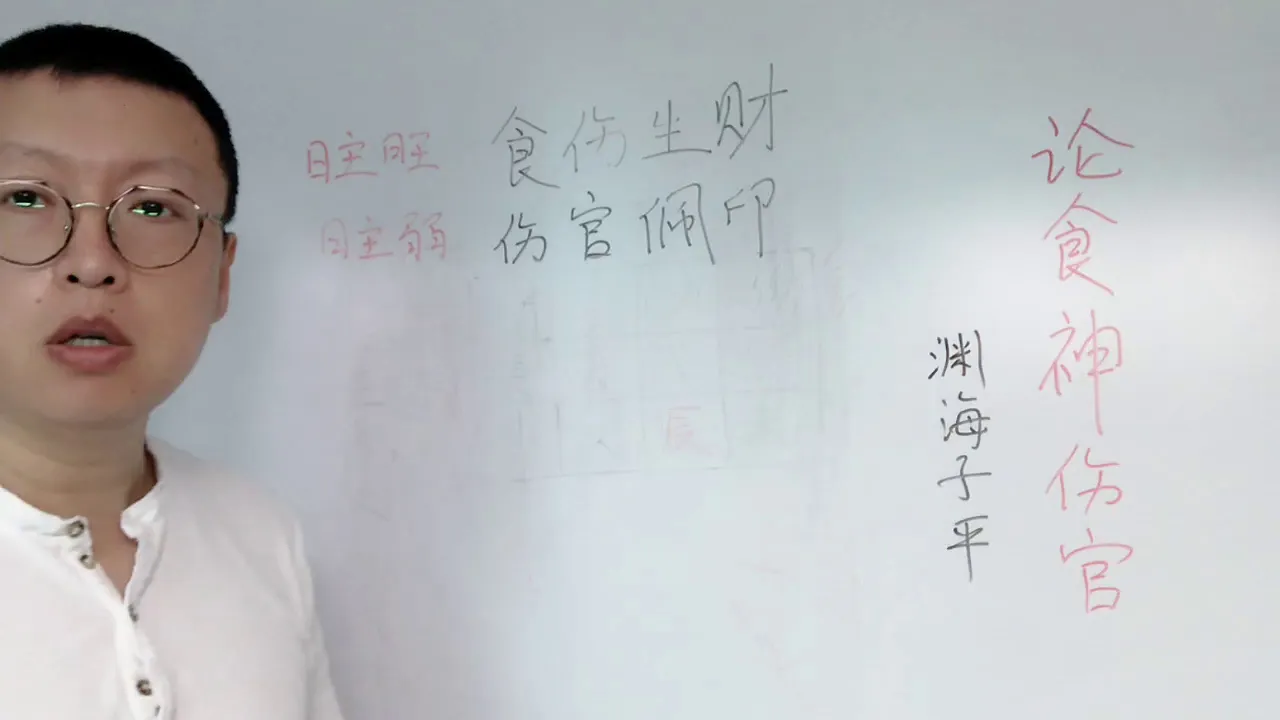 日主旺 食伤生财
日主弱 伤官佩印
论食神伤官
渊海子平